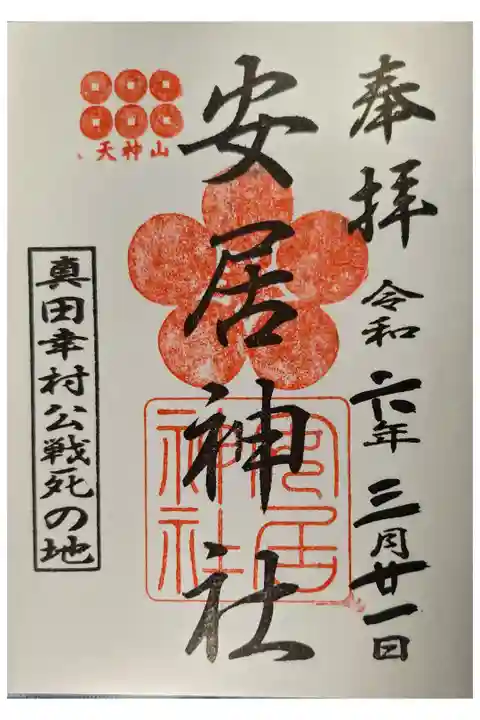 奉拝
令和六年三月廿一日
安居神社
安居神社
山神天、
真田幸村公戦死の地